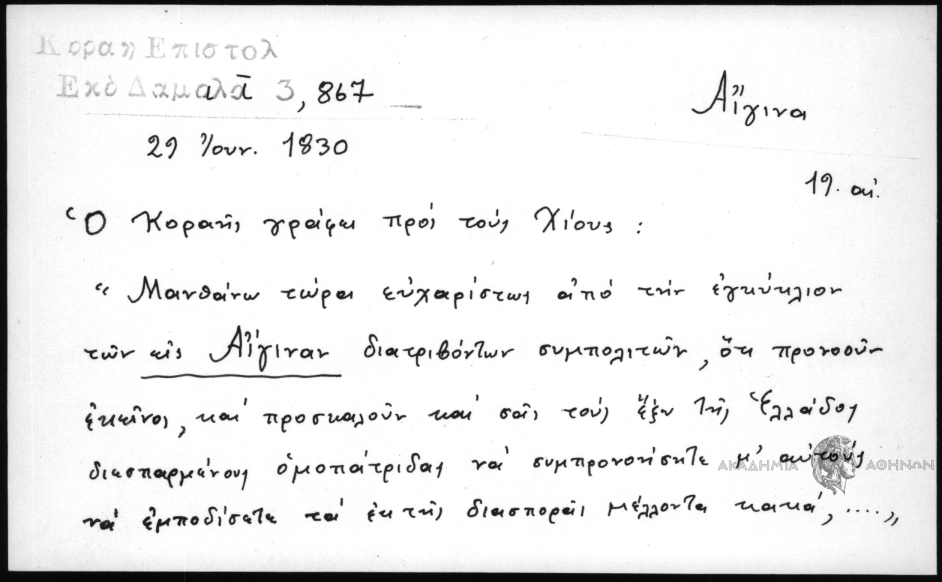 Κοραη Επιστολ
Εκδ Δαμαλᾶ 3, 867
29 Ἰουν. 1830
Αἴγινα
19. αἰ.
Ὁ Κοραῆς γράφει πρὸς τοὺς Χίους :
"Μανθάνω τώρα εὐχαρίστως ἀπό τήν ἐγκύκλιον
τῶν εἰς Αἴγιναν διατριβόντων συμπολιτῶν, ὅτι προνοοῦν
ἐκεῖνοι, καί προσκαλοῦν καί σᾶς τούς ἔξω τῆς Ἑλλάδος
διασπαρμένους ὁμοπάτριδας νά συμπρονοήσητε μ' αὐτούς
νά ἐμποδίσετε τά ἐκ τῆς διασπορᾶς μέλλοντα κακά, ....."
ΑΚΑΔΗΜΙΑ ΑΘΗΝΩΝ